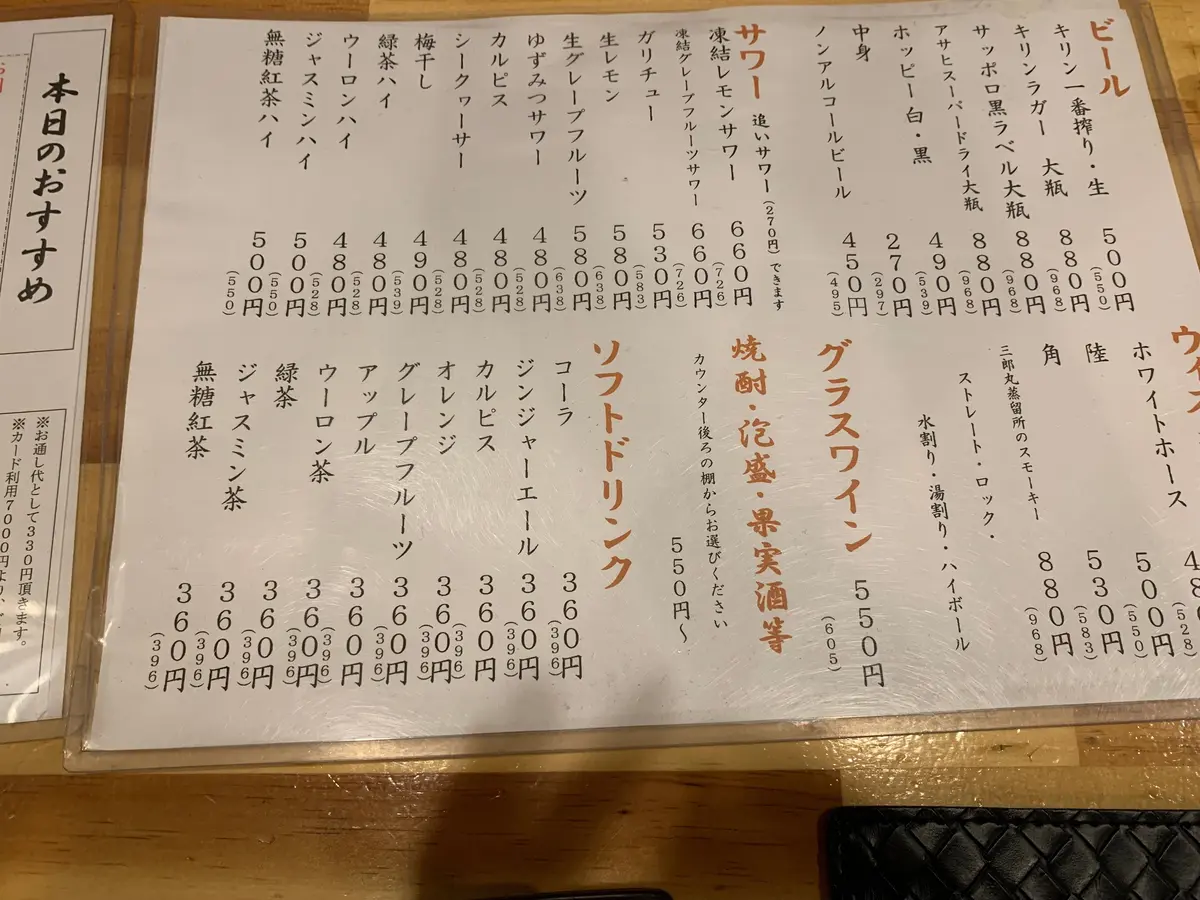 ビール
キリン一番搾り・生 500円
(550)
キリンラガー 大瓶 880円
(968)
サッポロ黒ラベル大瓶 880円
(968)
アサヒスーパードライ大瓶 880円
(968)
ホッピー白・黒 490円
(539)
中身 270円
(297)
ノンアルコールビール 450円
(495)
サワー 追いサワー(270円)できます
凍結レモンサワー 660円
(726)
凍結グレープフルーツサワー 660円
(726)
ガリチュー 530円
(583)
生レモン 580円
(638)
生グレープフルーツ 580円
(638)
ゆずみつサワー 480円
(528)
カルピス 480円
(528)
シークヮーサー 480円
(528)
梅干し 490円
(539)
緑茶ハイ 480円
(528)
ウーロンハイ 480円
(528)
ジャスミンハイ 500円
(550)
無糖紅茶ハイ 500円
(550)
ウイス
ホワイトホース 48
(528)
陸 500円
(550)
角 530円
(583)
三郎丸蒸留所のスモーキー 880円
(968)
ストレート・ロック・
水割り・湯割り・ハイボール
グラスワイン 550円
(605)
焼酎・泡盛・果実酒等
カウンター後ろの棚からお選びください
550円〜
ソフトドリンク
コーラ 360円
(396)
ジンジャーエール 360円
(396)
カルピス 360円
(396)
オレンジ 360円
(396)
グレープフルーツ 360円
(396)
アップル 360円
(396)
ウーロン茶 360円
(396)
緑茶 360円
(396)
ジャスミン茶 360円
(396)
無糖紅茶 360円
(396)
本日のおすすめ
※お通し代として330円頂きます。
※カード利用7000円より